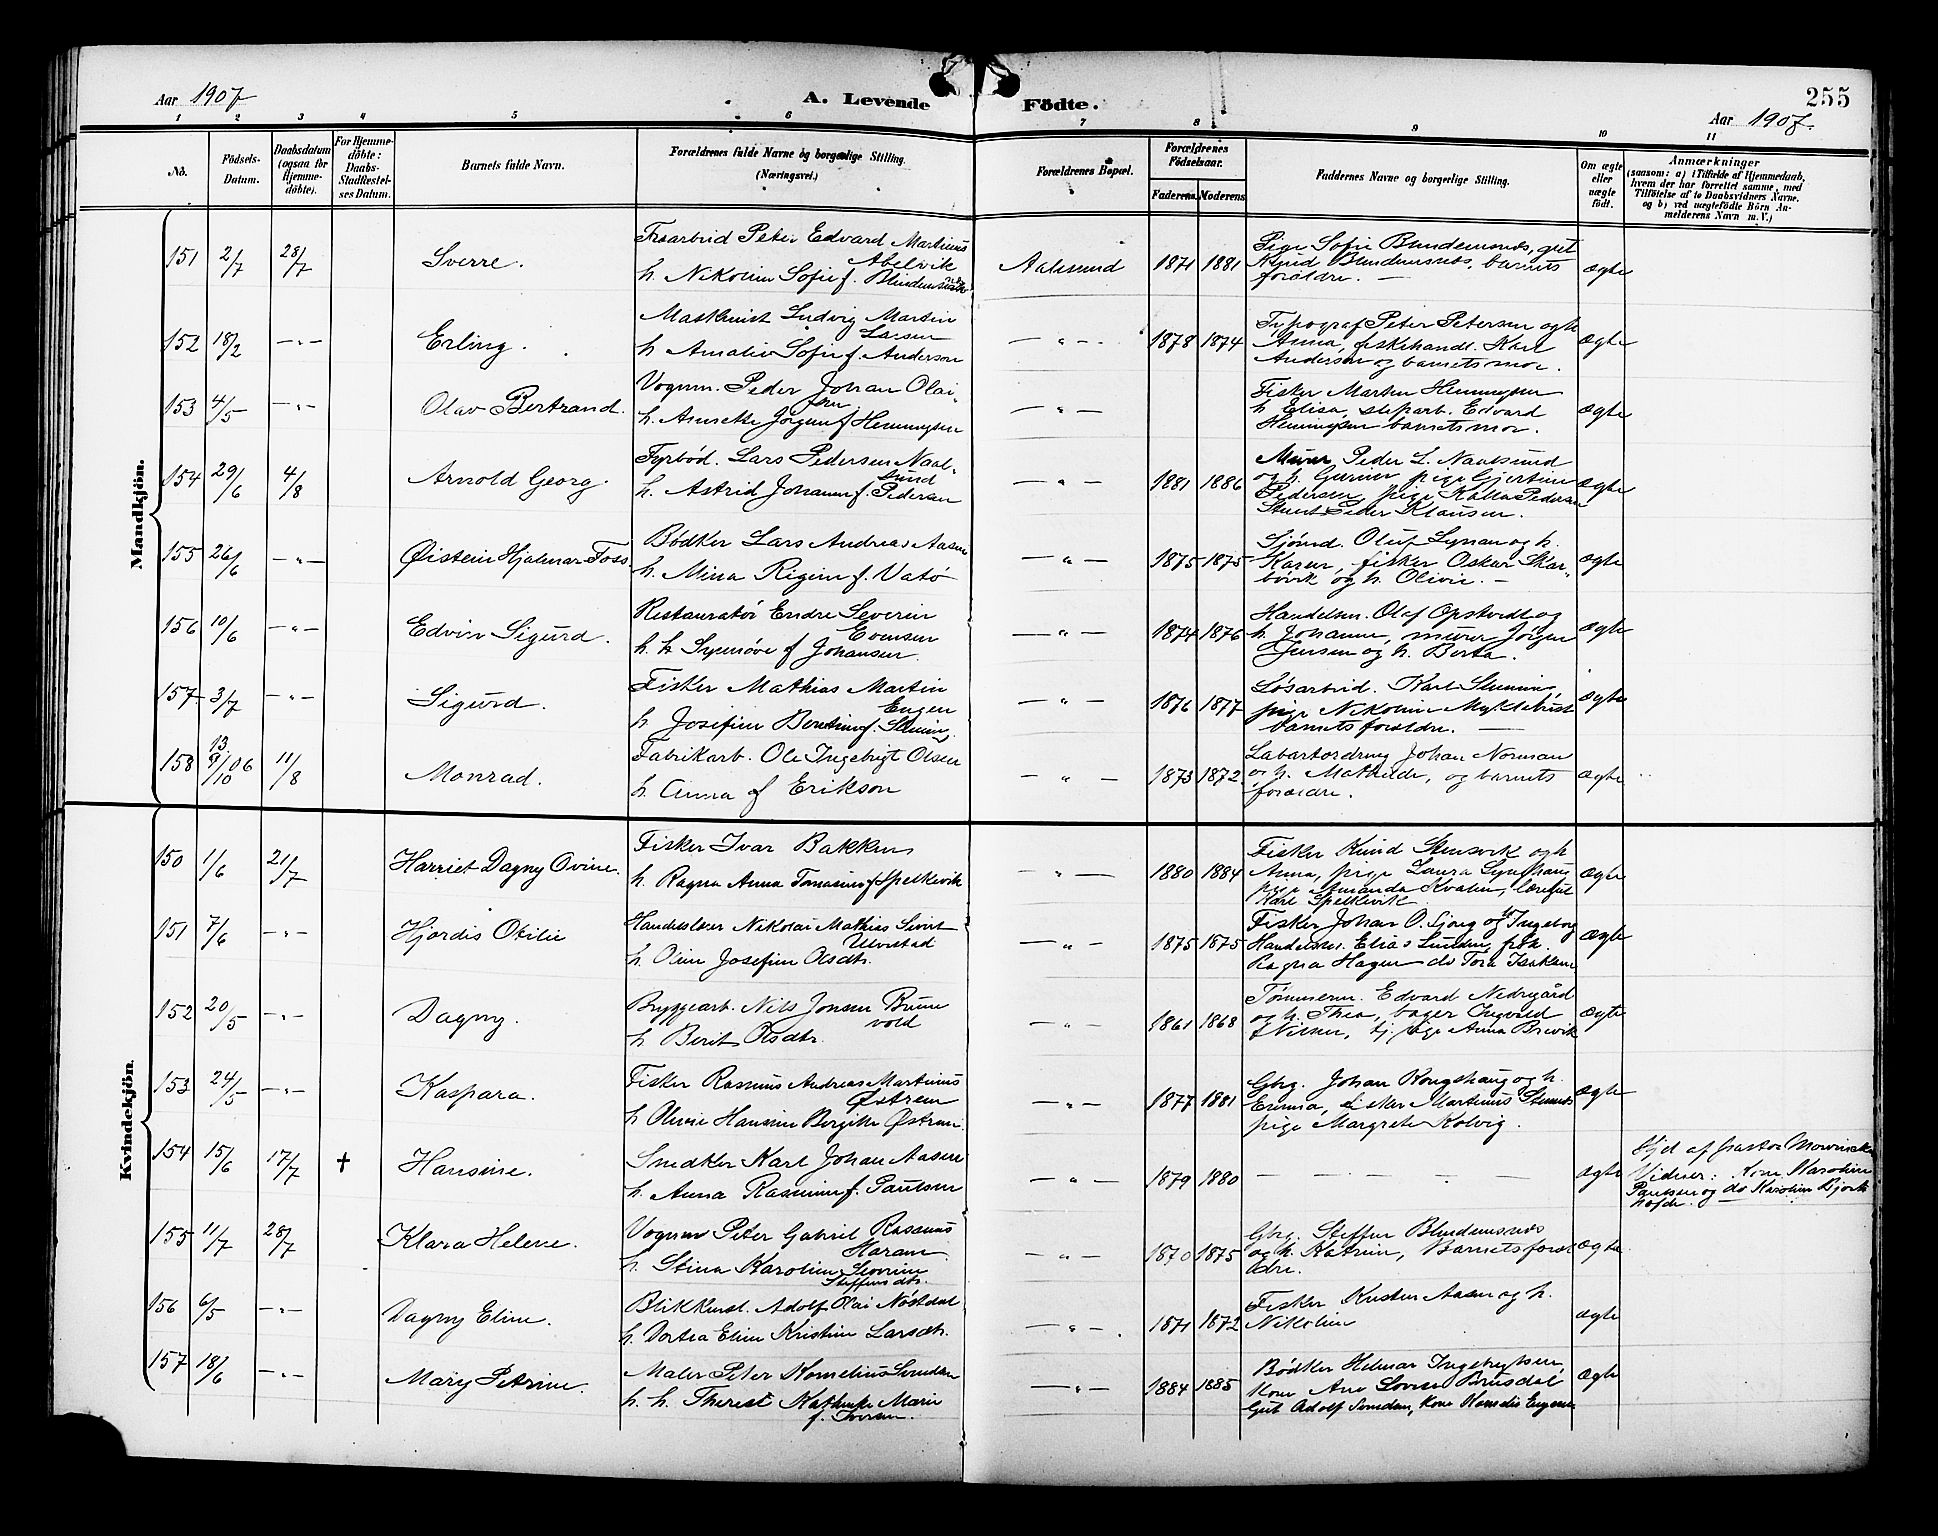 255
Aar 1907
A. Levende Födte.
Aar 1907.
1 2 3 4 5 6 7 8 9 10 11
No.
Födsels-Datum.
Daabsdatum (ogsaa for Hjemme-döbte).
For Hjemme-döbte: Daabs-Stadfestel-ses Datum.
Barnets fulde Navn.
Forældrenes fulde Navne og borgerlige Stilling. (Næringsvei.)
Forældrenes Bopæl.
Forældrenes Födselsaar.
Faderens. Moderens.
Faddernes Navne og borgerlige Stilling.
Om ægte eller uægte födt.
Anmærkninger
(saasom: a) i Tilfælde af Hjemmedaab,
hvem der har forrettet samme, med
Tilföielse af to Daabsvidners Navne.
og b) ved uægtefödte Börn An-
melderens Navn m. V.)
Mandkjön.
151 2/7 28/7 Sverre. Peter Edvard Martinus
Abelvik
h. Nikoline Sofie f. Aalesund 1871 1881 Pige Sofie Blindemsnes, gut
Knud Blindemsnes, barnets
forældre. — ægte
152 18/2 —„— Erling. Maskinist Ludvig Martin
Larsen
h. Amalie Sofie f. Anderson —„— 1878 1874 Typograf Peter Petersen og h
Anna, fiskehandl. Karl
Andersen og barnets mor. ægte
153 4/5 —„— Olav Bertrand. Vognm. Peder Johan Olai-
sen
h. Annette Jörgine f Hemmingsen —„— Fisker Martin Hemmingsen
h Elisa, Edvard
Hemmingsen barnets mor. ægte
154 29/6 4/8 Arnold Georg. Fyrbød. Lars Pedersen Naal-
sund
h. Astrid Johanne f. Pedersen —„— 1881 1886 Murer Peder L. Naalsund
og h. Gurine, pige Gjertine
Pedersen, pige Kalla Pedersen
Peder Klausen. ægte
155 26/6 —„— Øistein Hjalmar Foss. Bødker Lars Andreas Aasen
h. Mina Rigine f. Vatö —„— 1875 1875 Sjömd. Oluf Synan og h.
Karen, fisker Oskar Skar-
bövik og h. Olivie. — ægte
156 10/6 —„— Edvin Sigurd. Restauratör Endre Severin
Evensen
h. h Synnöve f Johansen. —„— 1874 1876 Handelsm. Olaf Opstvedt og
h. Johanne, murer Jörgen
Jensen og h. Berta. ægte
157 3/7 —„— Sigurd. Fisker Mathias Martin
Engen
h. Josefine Berntine f. —„— 1876 1877 Lösarbeid. Karl
pige Nikoline Myklebust
barnets forældre. — ægte
158 13 9/10 06 11/8 Monrad. Fabrikarb. Ole Ingebrigt Olsen
h. Anna f Erikson —„— 1873 1872. Johan Norman
og h. Mathilde, og barnets
forældre. ægte
Kvindekjön.
150 1/6 21/7 Harriet Dagny Ovine. Fisker Ivar Bakken
h. Ragna Anna Tomasine f Spelkevik —„— 1880 1884 Fisker Knud Stensvik og h
Anna, pige Laura Synshaug
pige Amanda Kvalen,
Karl Spelkevik. ægte
151 7/6 —„— Hjordis Otilie Nikolai Mathias Sivert
Ulvestad
h. Oline Josefine Olsdtr. —„— 1875 1875 Fisker Johan O. Sjong og h Ingeborg
Handelsm. Elias Lunden, frk.
Ragna Hagen do Tora Isaksen ægte
152 20/5 —„— Dagny. Bryggearb. Nils Jonsen Brune
vold
h Berit Olsdtr. —„— 1861 1868 Tömmerm. Edvard Nedregård
og h. Thea, bager Ingvald
Nilsen, tj. pige Anna Brevik ægte
153 24/5 —„— Kaspara. Fisker Rasmus Andreas Martinus
Østrem
h Olivie Hansine Bergitte Østrem. —„— 1877 1881 Gbrg. Johan Kongshaug og h.
Emma, Martinus
pige Margrete Kolvig. ægte
154 15/6 17/7 † Hansine. Snedker Karl Johan Aasen
h. Anna Rasmine f. Paulsen —„— 1879 1880 — — — — — ægte Hjd af pastor
Vidner: kone Karoline
Paulsen og do Karoline Bjork
155 11/7 28/7 Klara Helene. Vognm Peter Gabriel Rasmus
Haram
h. Stina Karoline Severine
Steffensdtr. —„— 1870 1875 Gbrg. Steffen Blindemsnes
og h. Katrine, Barnets foræl
dre. ægte
156 6/5 —„— Dagny Eline. Blikkensl. Adolf Olai Nøstdal
h. Dortea Eline Kristine Larsdtr. —„—. 1871 1872 Fisker Kristen Aasen og h.
Nikoline ægte
157 18/6 —„— Mary Petrine. Maler Peter Kornelius
h. h. Therese Kathinka Marie
f. Iversen. —„— 1884 1885 Bødker Helmar Ingebrigtsen,
Kone Ane Lovise Brusdal
Gut Adolf Kone Kornelie Eugenie ægte